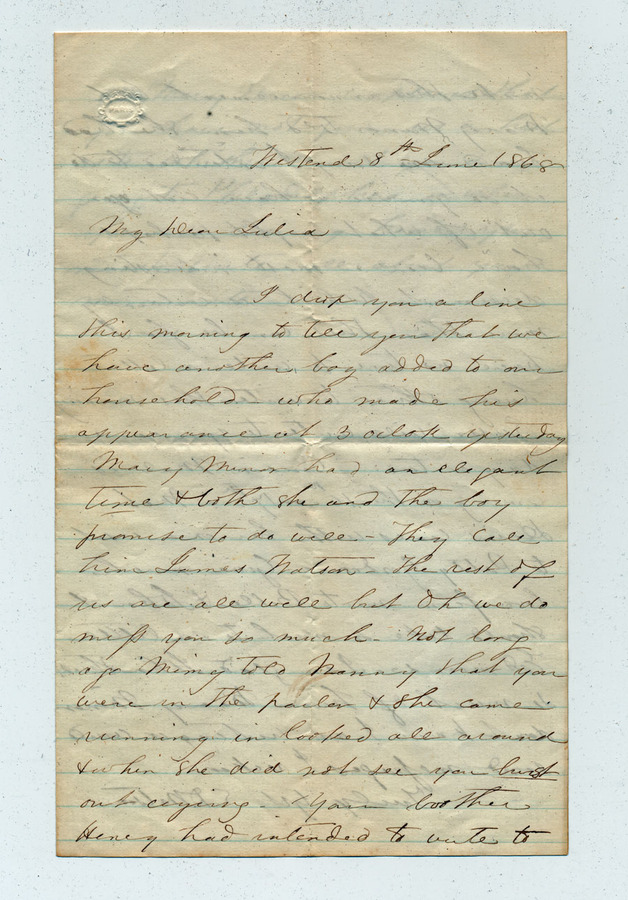 Westend 8th June 1868
My Dear Julia
I drop you a line
this morning to tell you that we
have another boy added to our
household who made his
appearance at 3 oclok yesterday
Mary Minor had an elegant
time & both she and the boy
promise to do well - They call
him James Watson - The rest of
us are all well but Oh we do
miss you so much - Not long
ago Mimy told Nanny that you
were in the parlor & she came
running in looked all around
& when she did not see you bust
out crying - Your brother
Henry had intended to write to